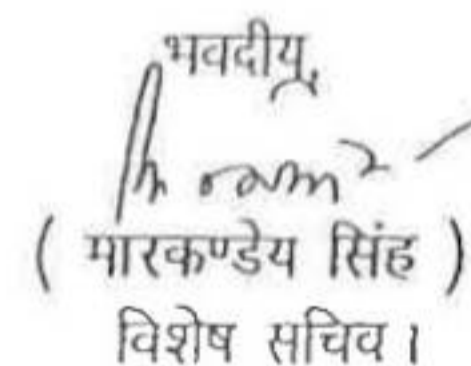 भवदीय,
( मारकण्डेय सिंह )
विशेष सचिव।